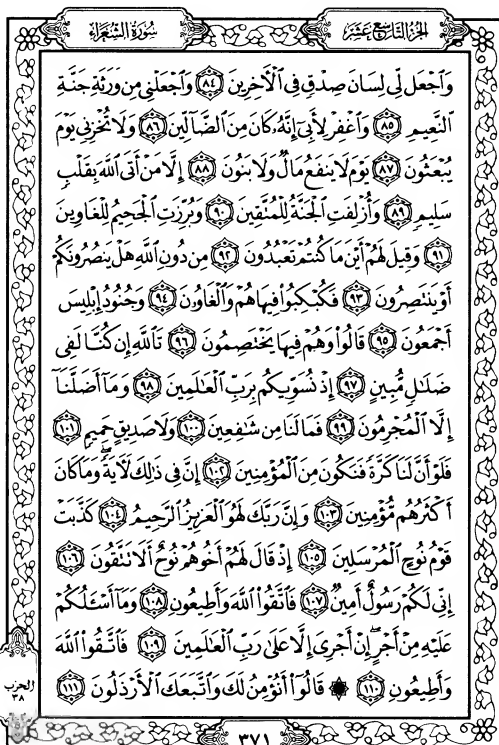 الجزء التاسع عشر
سورة الشعراء
وَٱجۡعَل لِّي لِسَانَ صِدۡقٖ فِي ٱلۡأٓخِرِينَ ٨٤ وَٱجۡعَلۡنِي مِن وَرَثَةِ جَنَّةِ
ٱلنَّعِيمِ ٨٥ وَٱغۡفِرۡ لِأَبِيٓ إِنَّهُۥ كَانَ مِنَ ٱلضَّآلِّينَ ٨٦ وَلَا تُخۡزِنِي يَوۡمَ
يُبۡعَثُونَ ٨٧ يَوۡمَ لَا يَنفَعُ مَالٞ وَلَا بَنُونَ ٨٨ إِلَّا مَنۡ أَتَى ٱللَّهَ بِقَلۡبٖ
سَلِيمٖ ٨٩ وَأُزۡلِفَتِ ٱلۡجَنَّةُ لِلۡمُتَّقِينَ ٩٠ وَبُرِّزَتِ ٱلۡجَحِيمُ لِلۡغَاوِينَ
٩١ وَقِيلَ لَهُمۡ أَيۡنَ مَا كُنتُمۡ تَعۡبُدُونَ ٩٢ مِن دُونِ ٱللَّهِ هَلۡ يَنصُرُونَكُمۡ
أَوۡ يَنتَصِرُونَ ٩٣ فَكُبۡكِبُواْ فِيهَا هُمۡ وَٱلۡغَاوُۥنَ ٩٤ وَجُنُودُ إِبۡلِيسَ
أَجۡمَعُونَ ٩٥ قَالُواْ وَهُمۡ فِيهَا يَخۡتَصِمُونَ ٩٦ تَٱللَّهِ إِن كُنَّا لَفِي
ضَلَٰلٖ مُّبِينٍ ٩٧ إِذۡ نُسَوِّيكُم بِرَبِّ ٱلۡعَٰلَمِينَ ٩٨ وَمَآ أَضَلَّنَآ
إِلَّا ٱلۡمُجۡرِمُونَ ٩٩ فَمَا لَنَا مِن شَٰفِعِينَ ١٠٠ وَلَا صَدِيقٍ حَمِيمٖ ١٠١
فَلَوۡ أَنَّ لَنَا كَرَّةٗ فَنَكُونَ مِنَ ٱلۡمُؤۡمِنِينَ ١٠٢ إِنَّ فِي ذَٰلِكَ لَأٓيَةٗۖ وَمَا كَانَ
أَكۡثَرُهُم مُّؤۡمِنِينَ ١٠٣ وَإِنَّ رَبَّكَ لَهُوَ ٱلۡعَزِيزُ ٱلرَّحِيمُ ١٠٤ كَذَّبَتۡ
قَوۡمُ نُوحٍ ٱلۡمُرۡسَلِينَ ١٠٥ إِذۡ قَالَ لَهُمۡ أَخُوهُمۡ نُوحٌ أَلَا تَتَّقُونَ ١٠٦
إِنِّي لَكُمۡ رَسُولٌ أَمِينٞ ١٠٧ فَٱتَّقُواْ ٱللَّهَ وَأَطِيعُونِ ١٠٨ وَمَآ أَسۡـَٔلُكُمۡ
عَلَيۡهِ مِنۡ أَجۡرٍۖ إِنۡ أَجۡرِيَ إِلَّا عَلَىٰ رَبِّ ٱلۡعَٰلَمِينَ ١٠٩ فَٱتَّقُواْ ٱللَّهَ
وَأَطِيعُونِ ١١٠ ۞ قَالُوٓاْ أَنُؤۡمِنُ لَكَ وَٱتَّبَعَكَ ٱلۡأَرۡذَلُونَ ١١١
الحزب
٣٨
٣٧١